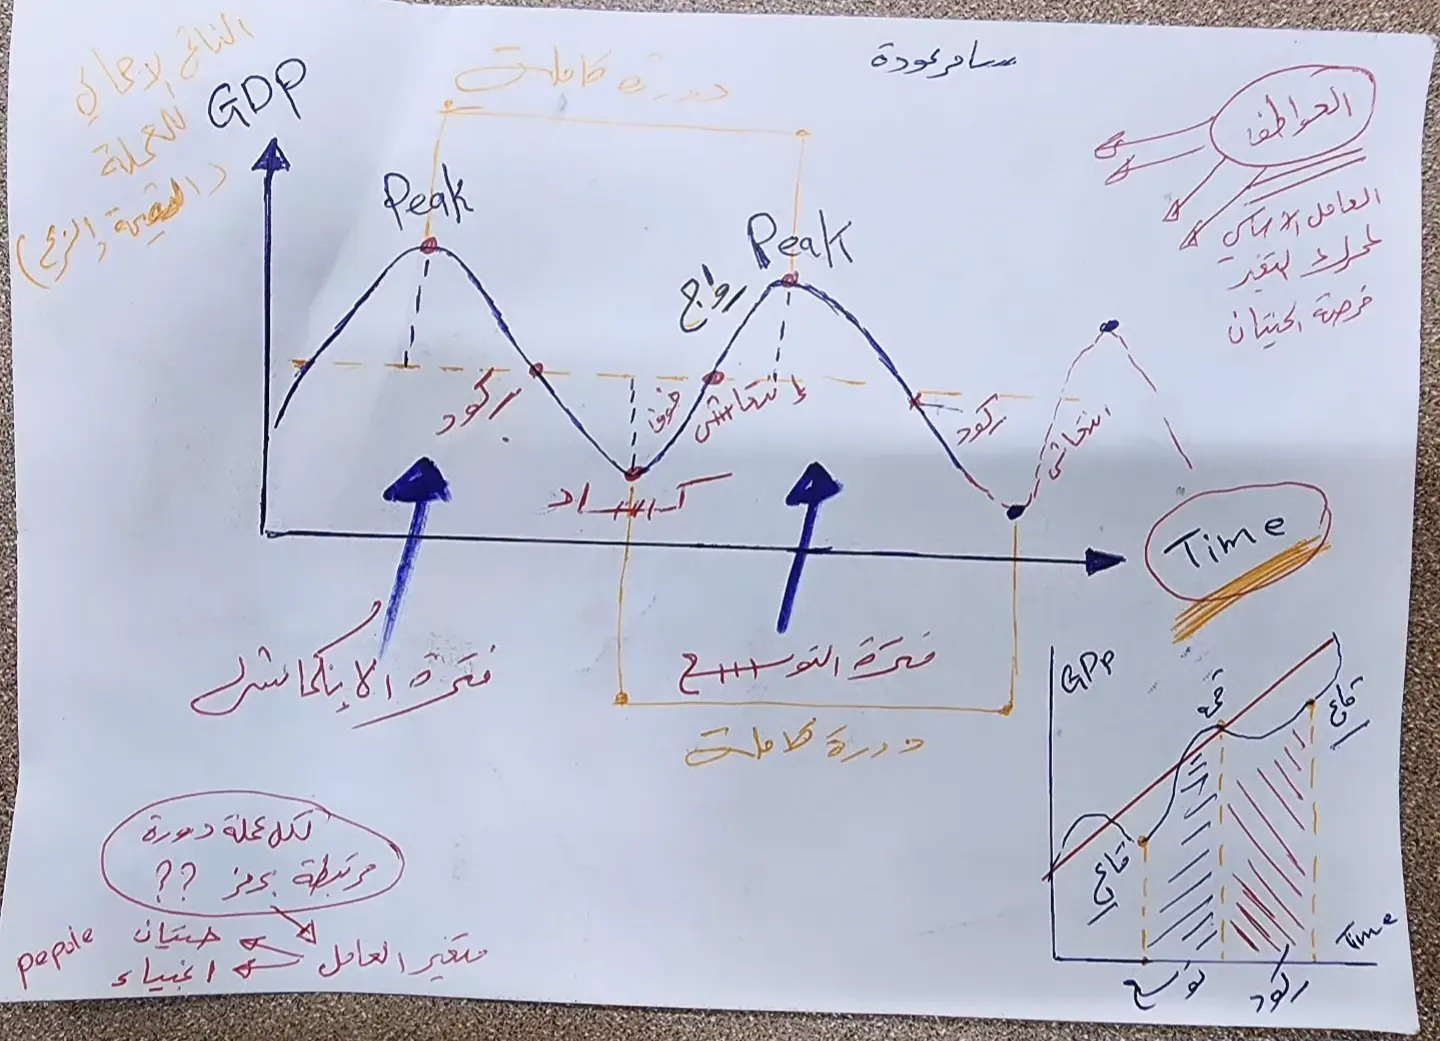 سامر عودة
الناتج الاجمالي
للعملة
(القيمة الربح)
GDP
دورة كاملة
العواطف
العامل الأساسي
لمحرك لتغير
فرصة الحيتان
Peak
Peak
رواج
ركود
خوف
إنتعاش
ركود
انتعاش
كساد
Time
فترة الإنكماش
فترة التوسع
دورة كاملة
GDP
قمة
قاع
قاع
Time
توسع
ركود
لكل عملة دورة
مرتبطة برمز ??
متغير العامل
حيتان
اغبياء
pepole